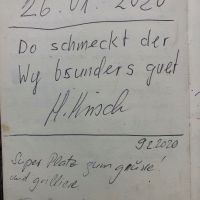 26.01.2020
Do schmeckt der
Wy bsunders guet
H. Hirsch
9.2.2020
Super Platz zum
und grilliere